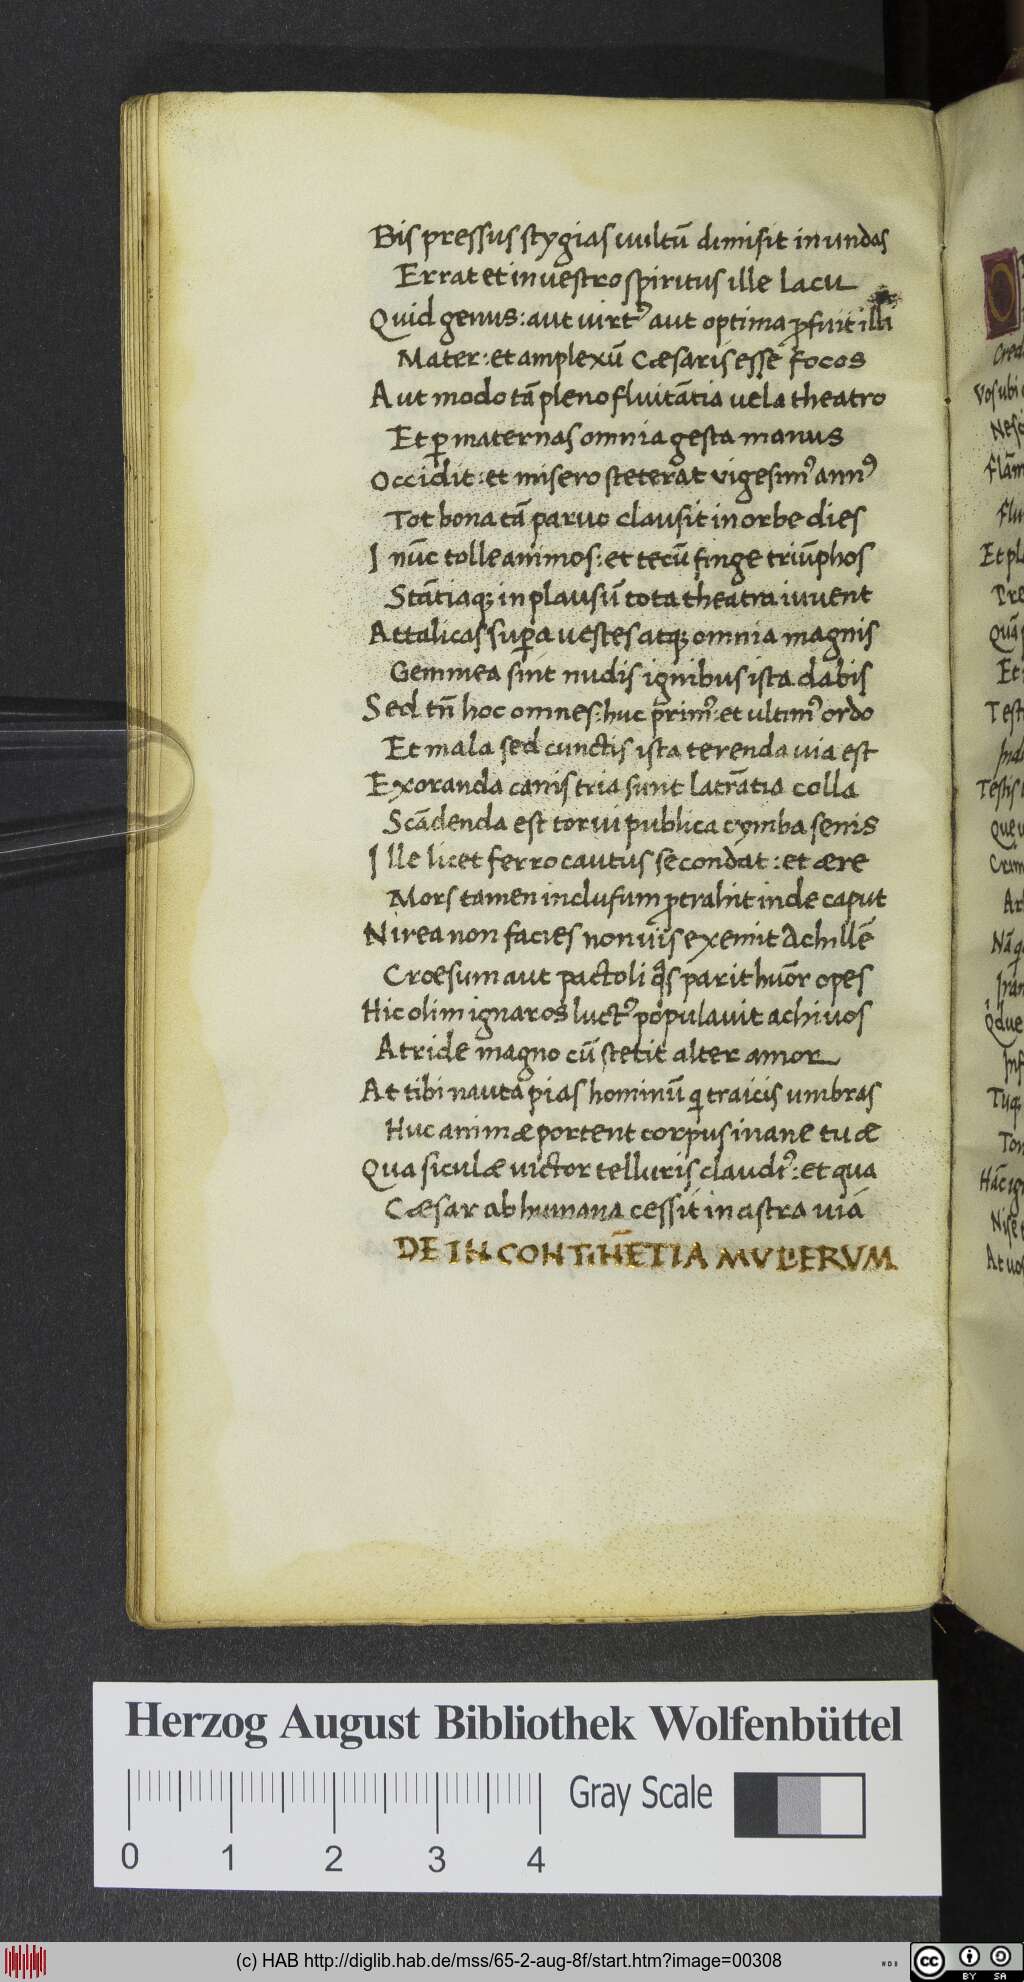 Bis pressus stygias uultū dimisit in undas
Errat et in uestro spiritus ille lacu
Quid genus: aut uirtꝰ aut optima ꝓfuit illi
Mater: et amplexū Cæsaris esse focos
Aut modo tā pleno fluitātia uela theatro
Et ꝑ maternas omnia gesta manus
Occidit: et misero steterāt vigesimꝰ annꝰ
Tot bona tā paruo clausit in orbe dies
I nūc tolle animos: et tecū finge triūphos
Stātiaqꝫ in plausū tota theatra iuuent
Attalicas suꝑa uestes atqꝫ omnia magnis
Gemmea sint nudis ignibus ista dabis
Sed tn̄ hoc omnes: huc primꝰ: et ultimꝰ ordo
Et mala sed cunctis ista terenda uia est
Exoranda canis tria sunt latrātia colla
Scādenda est torui publica cymba senis
Ille licet ferro cautus se condāt: et ære
Mors tamen inclusum ꝓtrahit inde caput
Nirea non facies non uis exemit Achillē
Croesum aut pactoli q̄s parit huōr opes
Hic olim ignaros luctꝰ populauit achiuos
Atride magno cū stetit alter amor
At tibi nauta pias hominū qi traicis umbras
Huc animæ portent corpus inane tuæ
Qua siculæ uictor telluris claudiꝰ: et qua
Cæsar ab humana cessit in astra uiā
DE IN CONTINĒTIA MULIERVM.
Cred
Vos ubi
Nesc
flām
flu
Et pl
Pre
Quā
Et
Test
Ind
Testis
Que
Crim
Ar
Nā q
Iran
Inf
Tuqꝫ
Ton
Hāc ig
Nise
At uos
Herzog August Bibliothek Wolfenbüttel
Gray Scale
0 1 2 3 4
(c) HAB http://diglib.hab.de/mss/65-2-aug-8f/start.htm?image=00308
WDB
cc BY SA